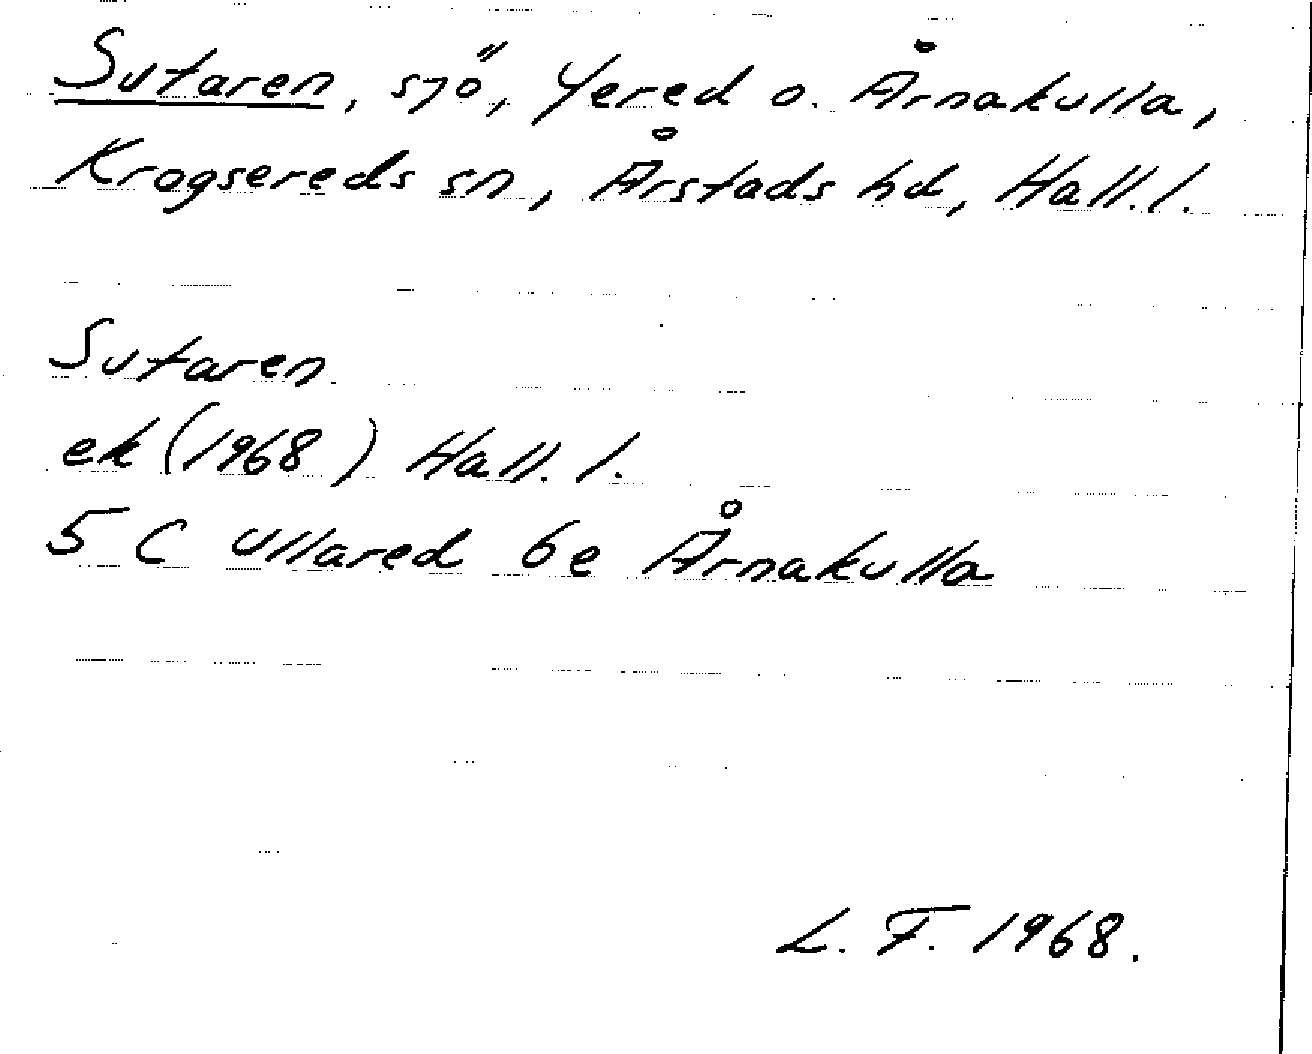 Sutaren, sjö, Yered o. Årnakulla,
Krogsereds sn, Årstads hd, Hall. l.
Sutaren
ek (1968) Hall. l.
5 C Ullared 6e Årnakulla
L. F. 1968.